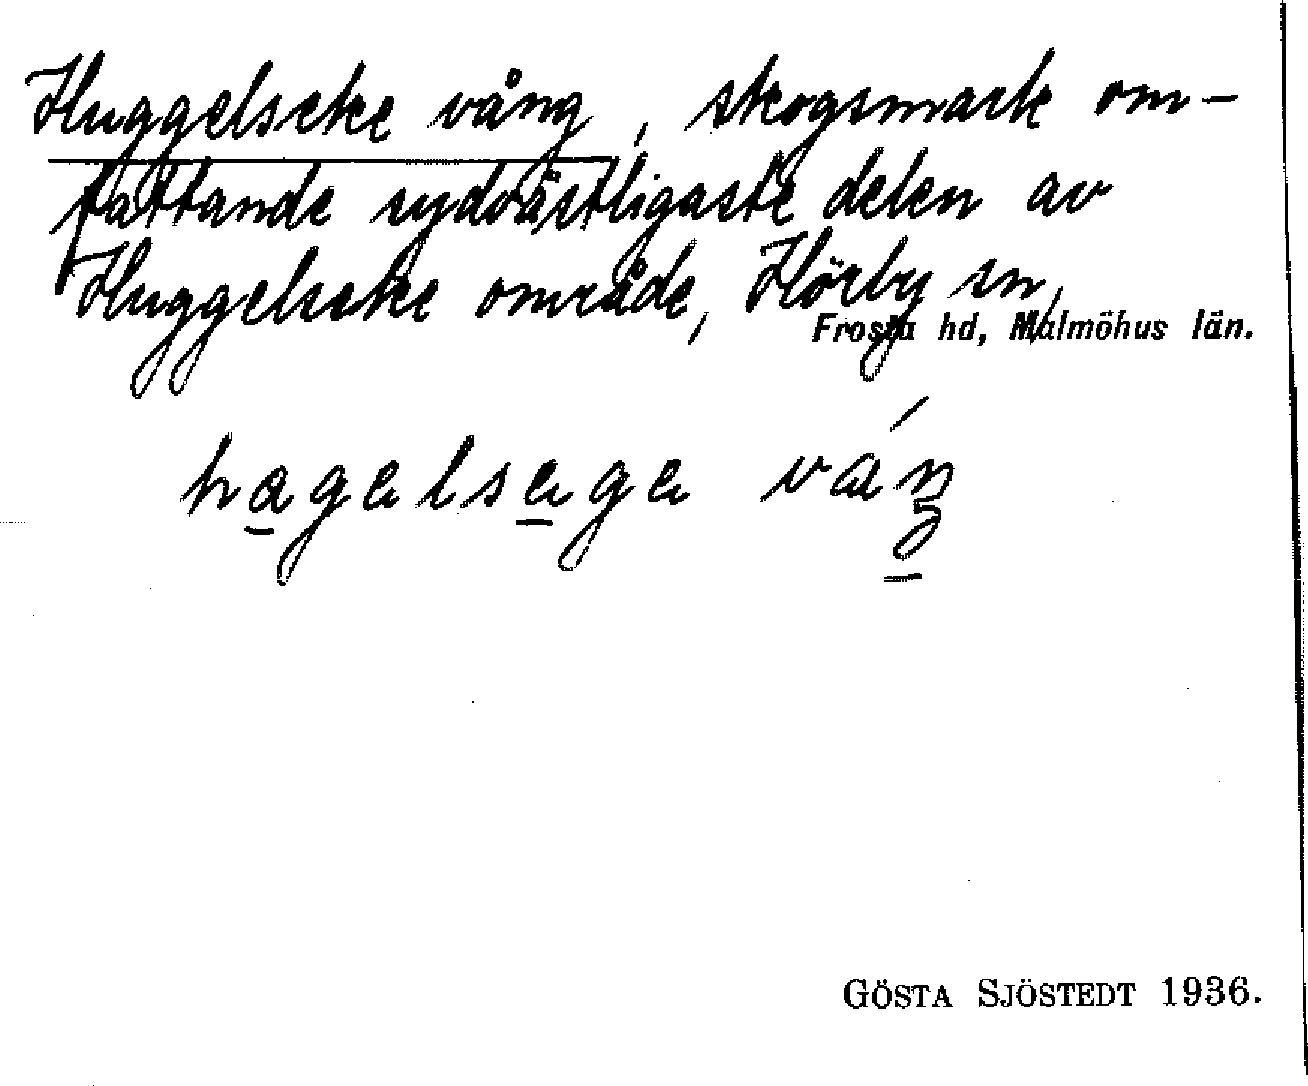 Huggelseke vång, skogsmark om-
fattande sydvästligaste delen av
Huggelseke område, Hörby sn,
Frosta hd, Malmöhus län.
GÖSTA SJÖSTEDT 1936.